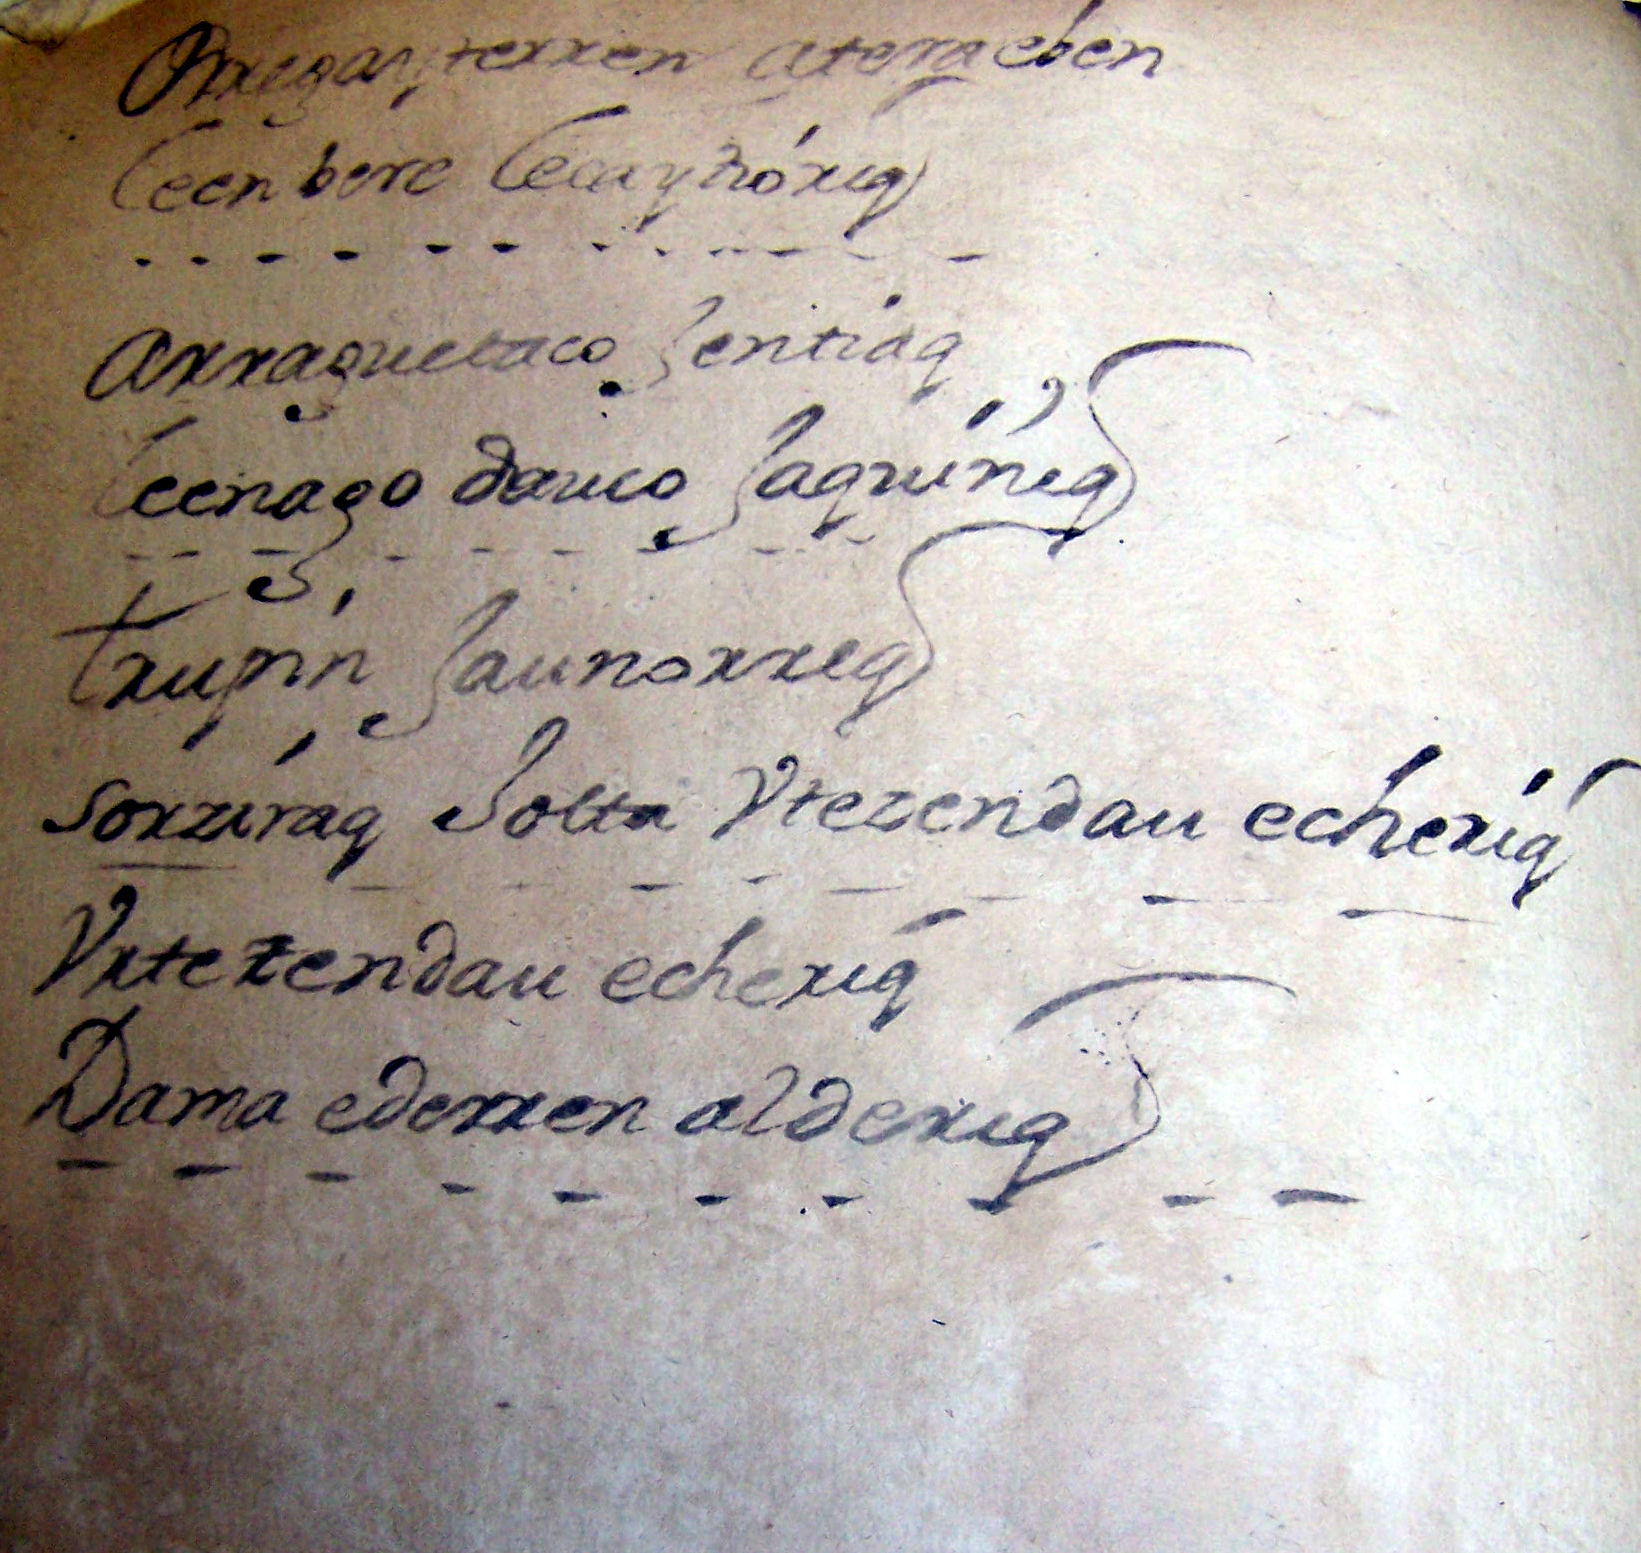 Orregayterren atera eben
Leen bere Lecaydóriq
Arraguetaco Jentiaq
Leenago dauco Jaquíniq
Trupín Jaunorreq
Sorzíraq Jolta Vtezendau echeriq
Vrtezendau echeriq
Dama ederren alderiq